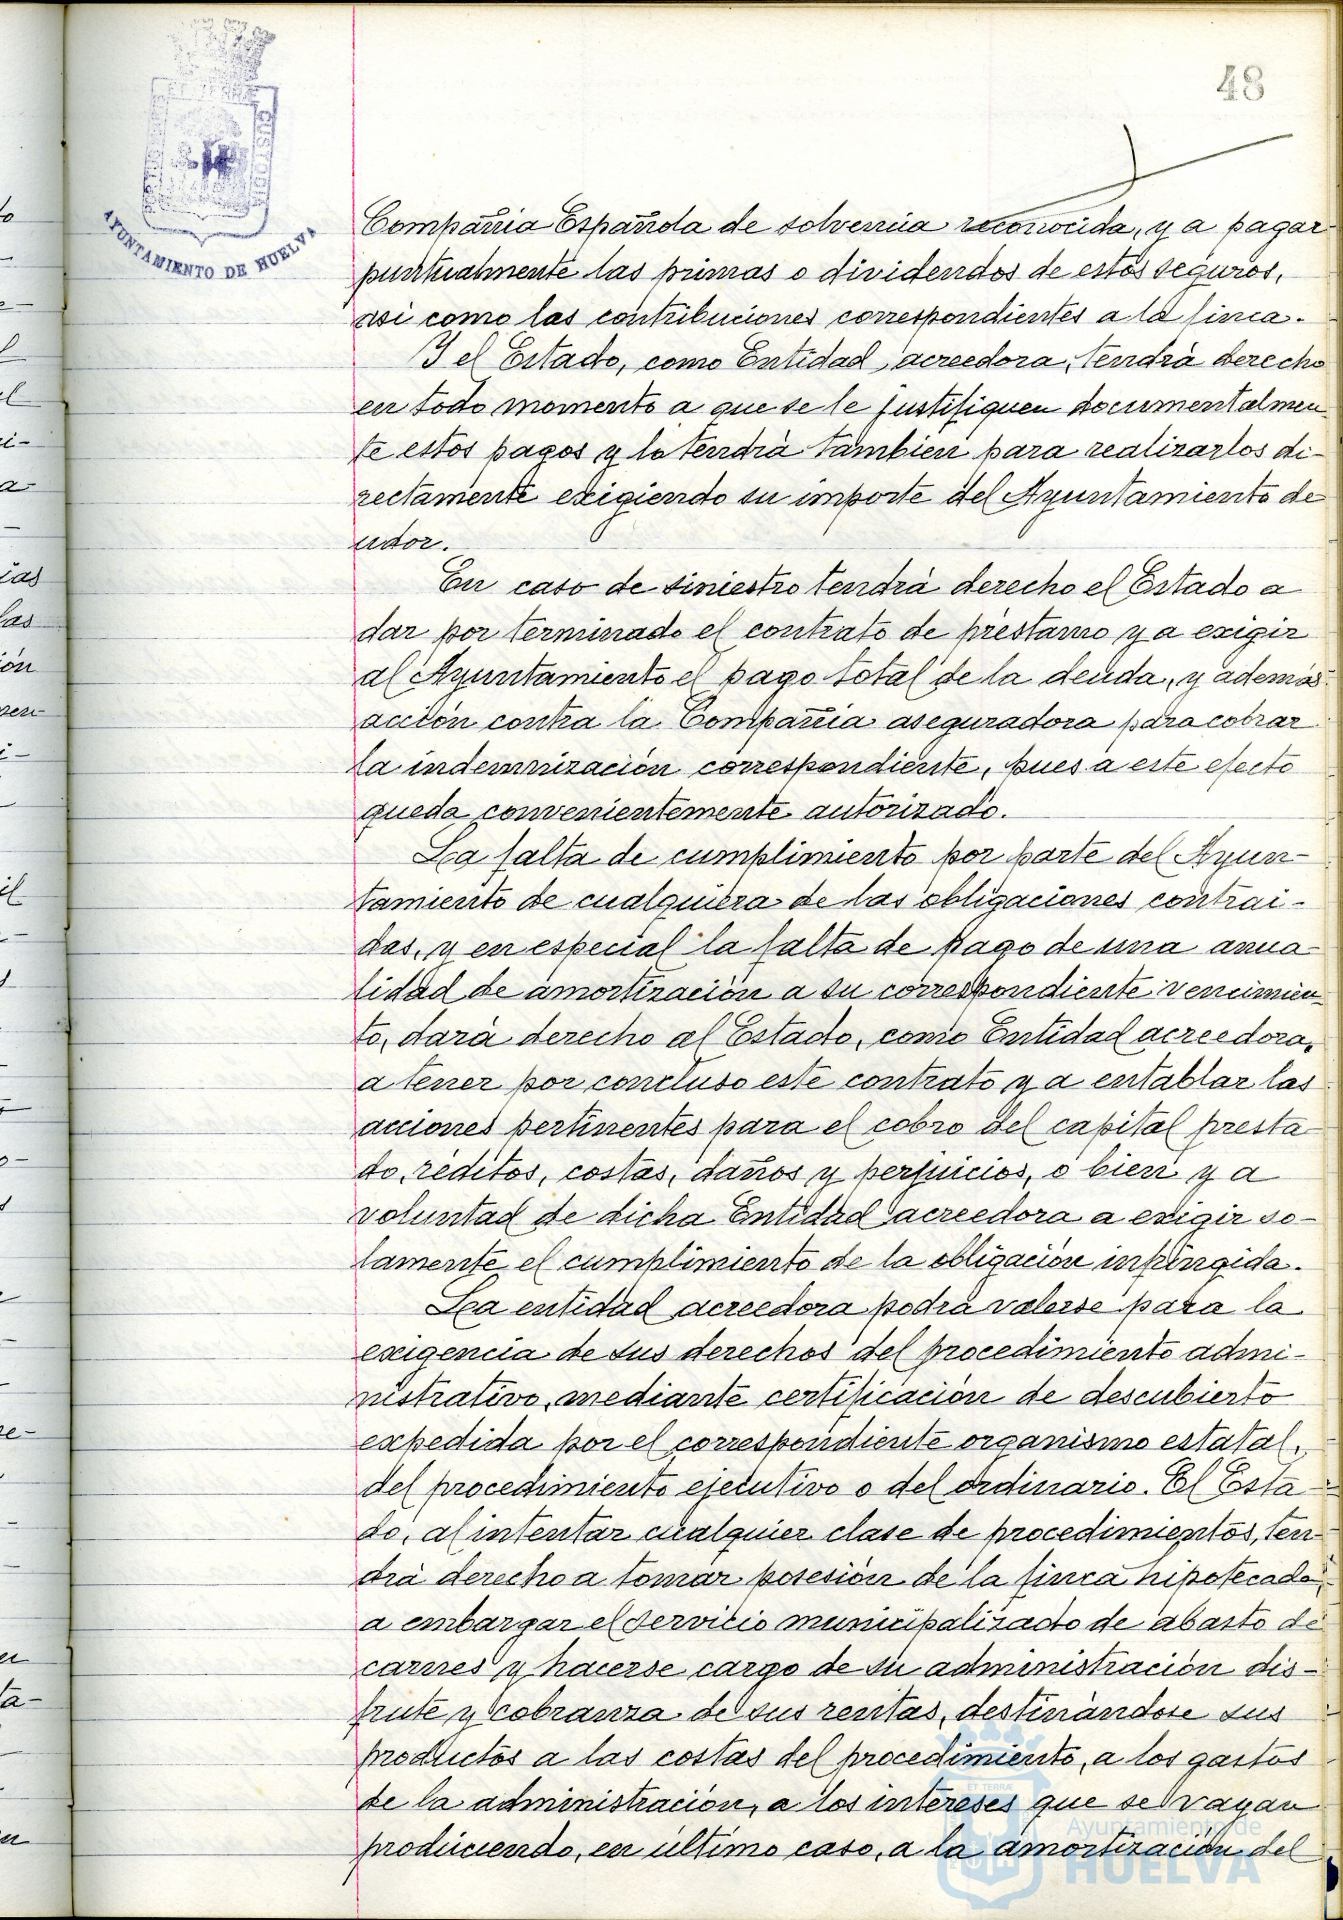 48
ET TERRÆ
PORTUS MARIS
CUSTODIA
AYUNTAMIENTO DE HUELVA
Compañia Española de solvencia reconocida, y a pagar
puntualmente las primas o dividendos de estos seguros,
asi como las contribuciones correspondientes a la finca.
Y el Estado, como Entidad acreedora, tendrá derecho
en todo momento a que se le justifiquen documentalmen-
te estos pagos y lo tendrá tambien para realizarlos di-
rectamente exigiendo su importe del Ayuntamiento de
udor.
En caso de siniestro tendrá derecho el Estado a
dar por terminado el contrato de préstamo y a exigir
al Ayuntamiento el pago total de la deuda, y además
acción contra la Compañia aseguradora para cobrar
la indemnización correspondiente, pues a este efecto
queda convenientemente autorizado.
La falta de cumplimiento por parte del Ayun-
tamiento de cualquiera de las obligaciones contrai-
das, y en especial la falta de pago de una anua-
lidad de amortización a su correspondiente vencimien-
to, dará derecho al Estado, como Entidad acreedora,
a tener por concluso este contrato y a entablar las
acciones pertinentes para el cobro del capital presta-
do, réditos, costas, daños y perjuicios, o bien y a
voluntad de dicha Entidad acreedora a exigir so-
lamente el cumplimiento de la obligación infringida.
La entidad acreedora podrá valerse para la
exigencia de sus derechos del procedimiento admi-
nistrativo, mediante certificación de descubierto
expedida por el correspondiente organismo estatal,
del procedimiento ejecutivo o del ordinario. El Esta-
do, al intentar cualquier clase de procedimientos, ten-
drá derecho a tomar posesión de la finca hipotecada,
a embargar el servicio municipalizado de abasto de
carnes y hacerse cargo de su administración dis-
frute y cobranza de sus rentas, destinándose sus
productos a las costas del procedimiento, a los gastos
de la administración, a los intereses que se vayan
produciendo, en último caso, a la amortización del
ET TERRÆ
Ayuntamiento de
HUELVA